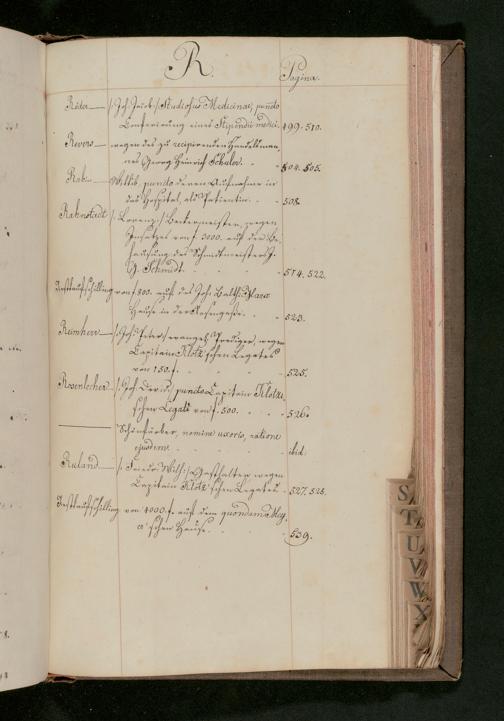 R.
Pagina.
Röder — /: Joh. Jacob :/ Studiosus Medicinae, puncto
Conferirung eines Stipendii medici. 499. 510.
Revers — wegen des zu recipirenden Handelsman
nes Georg Heinrich Schuler. 504. 505.
Rab — Willib. puncto deren Aufnahme in
das Hospital, als Patientin. 508.
Rabnstadt /: Lorenz :/ wegen
Insatzes von f. 3000. auf der Be-
hausung des Schmidtmeisters J.
G. Schmidt. 514. 522.
von f. 800. auf des Joh. Balth.
Hause in der 523.
Reimherr — /: Joh. Peter :/ evangel. Prediger, wegen
Capitain Klotz'schen Legates
von 150. f. 525.
Rosenlecher — /: Joh. David, puncto Capitain Klotzi-
schen Legats von f. 500. 526.
— Schönfärber, nomine uxoris, ratione
ejusdem. ibid.
Ruland — /: Friedr. Wilh. :/ Gasthalter wegen
Capitain Klotz'schen Legates 527. 528.
von 4000. f. auf dem quondam May-
er'schen Hause. 539.
S
T
U
V
W
X